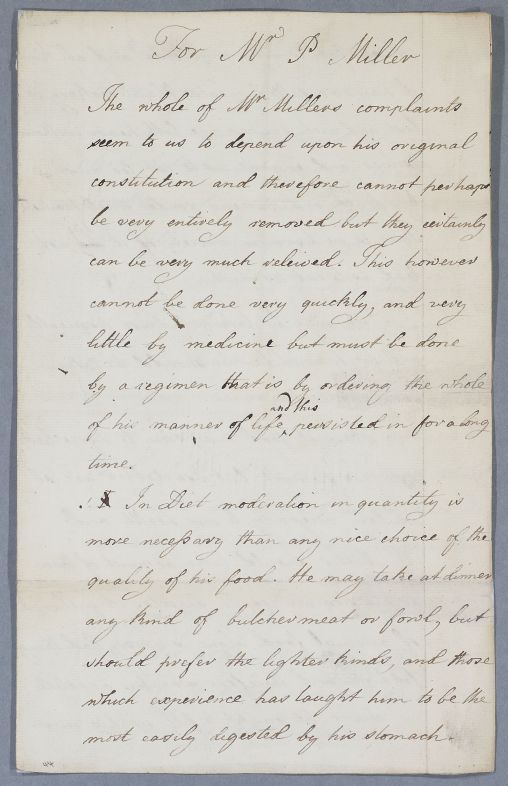 For Mr P Miller
The whole of Mr Millers complaints
seem to us to depend upon his original
constitution and therefore cannot perhaps
be very entirely removed but they certainly
can be very much releived. This however
cannot be done very quickly, and very
little by medicine but must be done
by a regimen that is by ordering the whole
and this
of his manner of life, persisted in for a long
time.
In Diet moderation in quantity is
more necessary than any nice choice of the
quality of his food. He may take at dinner
any kind of butcher meat or fowl, but
should prefer the lighter kinds, and those
which experience has taught him to be the
most easily digested by his stomach.